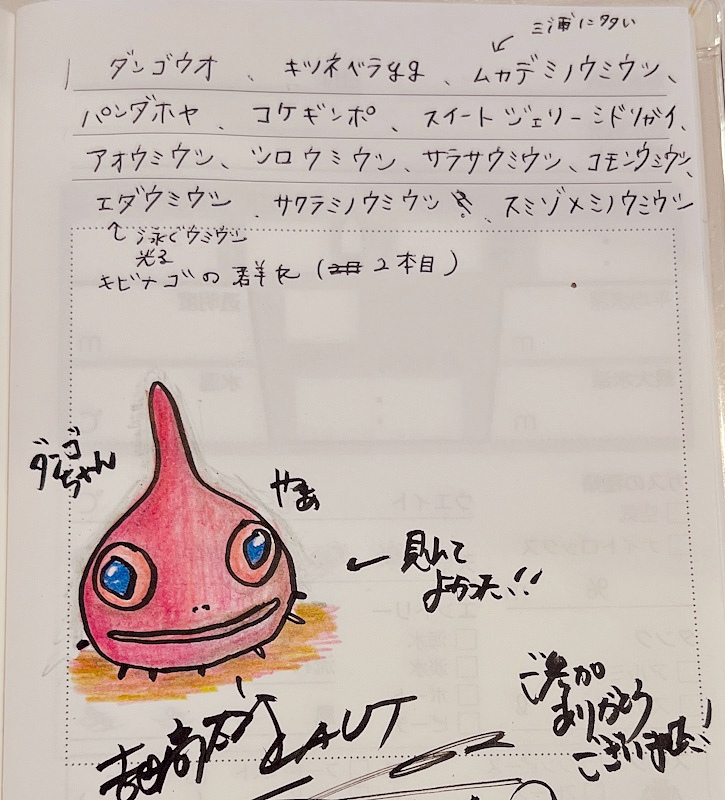 三浦に多い
ダンゴウオ、キツネベラyg、ムカデミノウミウシ、
パンダホヤ、コケギンポ、スイートジェリーミドリガイ、
アオウミウシ、シロウミウシ、サラサウミウシ、コモンウミウシ、
エダウミウシ、サクラミノウミウシ、スミゾメミノウミウシ
↑泳ぐウミウシ
光る
キビナゴの群れ(2本目)
ダンゴちゃん
やあ
←見れて
よかった!!
LAUT
ご参加
ありがとう
ございました!